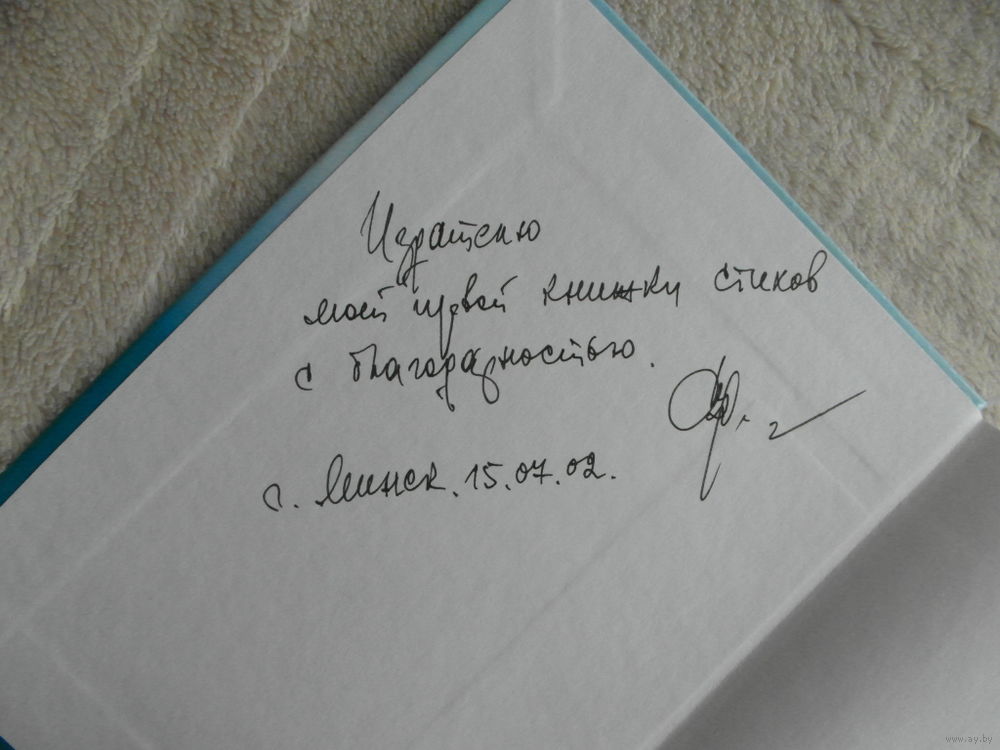 Издателю
моей первой книжки стихов
с благодарностью.
г. Минск. 15.07.02.
www.ay.by